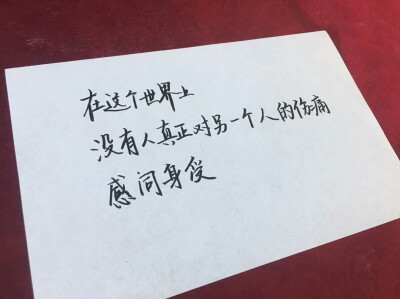 在这个世界上
没有人真正对另一个人的伤痛
感同身受